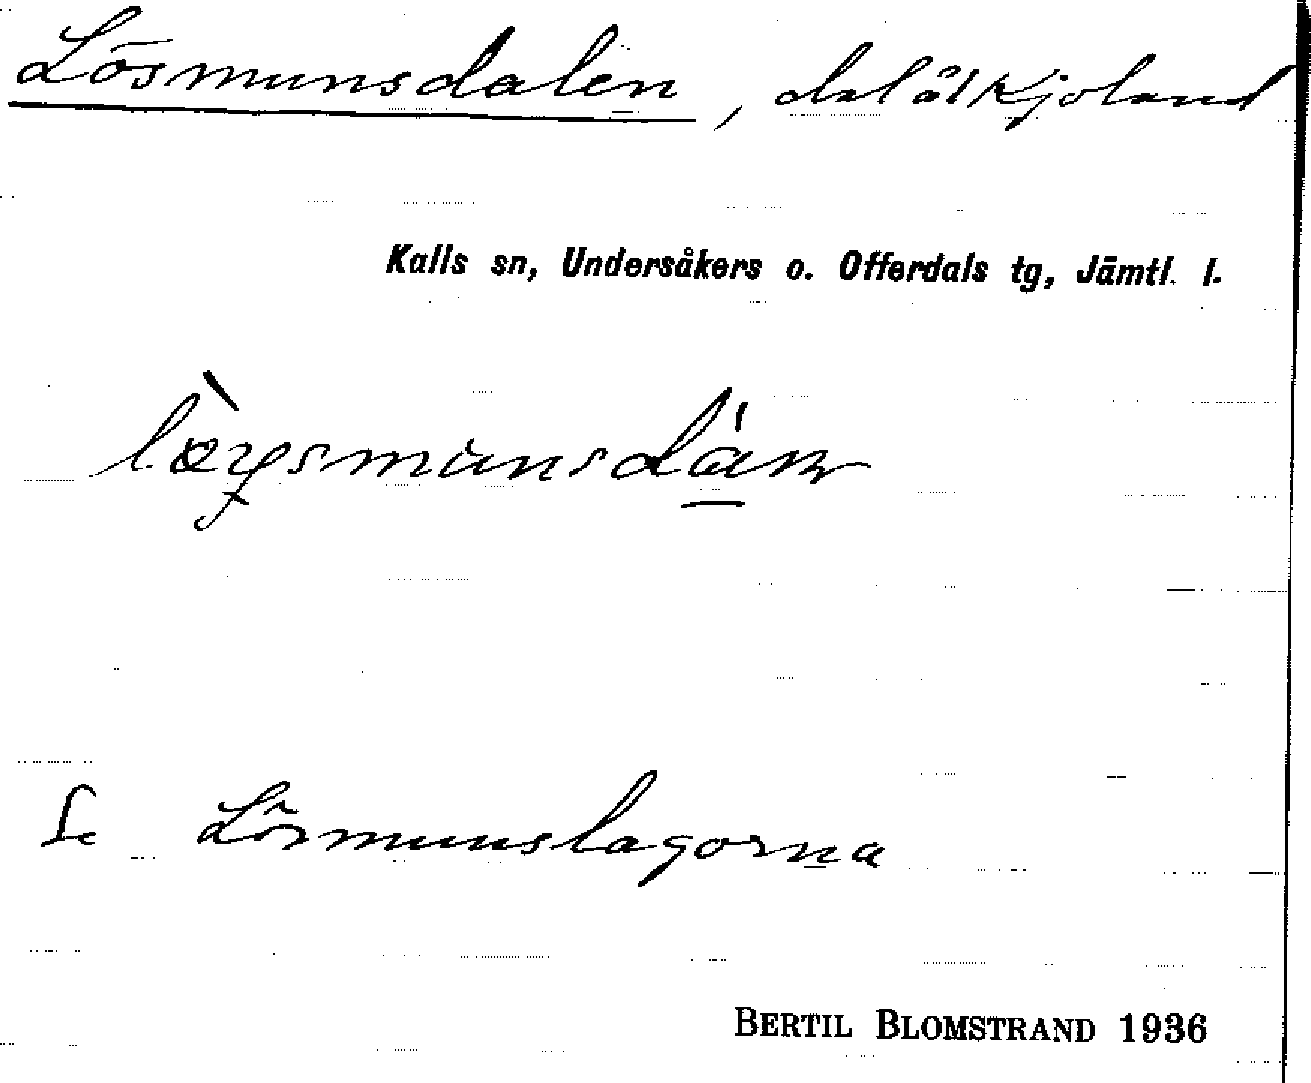 Lösmunsdalen, dal å Kjoland
Kalls sn, Undersåkers o. Offerdals tg, Jämtl. l.
Se Lösmunslagorna
BERTIL BLOMSTRAND 1936